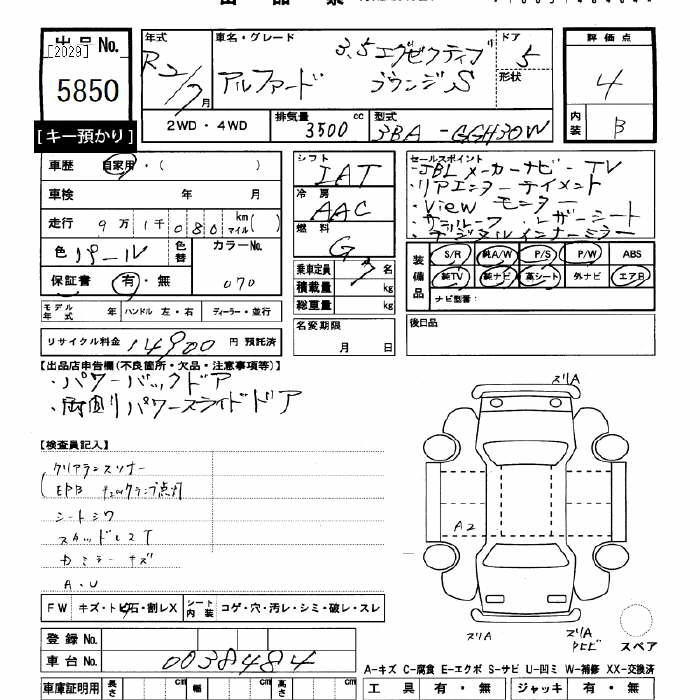 出品票
出品No.
[2029]
5850
[キー預かり]
年式 R2/7月
車名・グレード アルファード 3.5エグゼクティブラウンジS
ドア 5
形状
評価点 4
内装 B
2WD・4WD
排気量 3500cc
型式 3BA-GGH30W
車歴 自家用・( )
車検 年 月
走行 9万1千080km マイル( )
色 パール 色替
カラーNo. 070
保証書 有・無
モデル年式 年 ハンドル 左・右 ディーラー・並行
リサイクル料金 14900円 預託済
シフト IAT
冷房 AAC
燃料 G
乗車定員 7名
積載量 kg
総重量 kg
名変期限 月 日
セールスポイント
・JBLメーカーナビ・TV
・リアエンターテイメント
・Viewモニター
・サンルーフ・レザーシート
・デジタルインナーミラー
装備品
S/R 純A/W P/S P/W ABS
純TV 純ナビ 革シート 外ナビ エアB
ナビ型番:
後日品
【出品店申告欄(不良箇所・欠品・注意事項等)】
・パワーバックドア
・両側パワースライドドア
【検査員記入】
クリアランスソナー
EPB チェックランプ点灯
シートシワ
スカッフレスT
カミラーキズ
A・U
FW キズ・トビ石・割レX
シート内装 コゲ・穴・汚レ・シミ・破レ・スレ
登録No.
車台No. 0038484
車庫証明用 長さ cm 幅 cm 高さ cm
ズリA
A2
ズリA
ズリA
スペア
A-キズ C-腐食 E-エクボ S-サビ U-凹ミ W-補修 XX-交換済
工具 有・無 ジャッキ 有・無